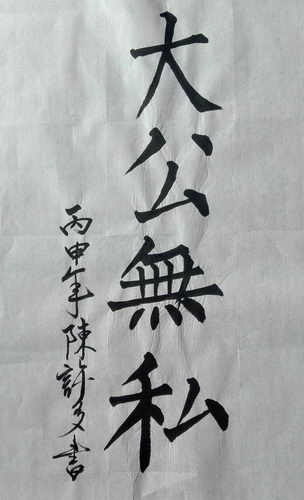 大公無私
丙申年陳計多書